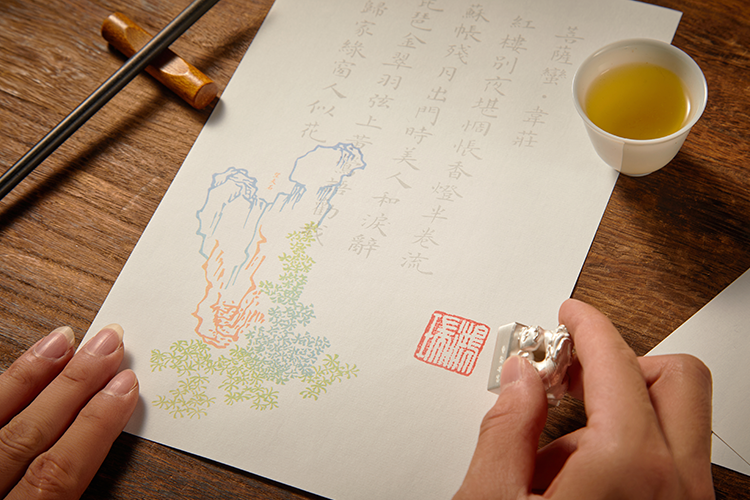 菩薩蠻·韋莊
紅樓別夜堪惆悵香燈半卷流
蘇帳殘月出門時美人和淚辭
琵琶金翠羽弦上黃語我
歸家綠窗人似花